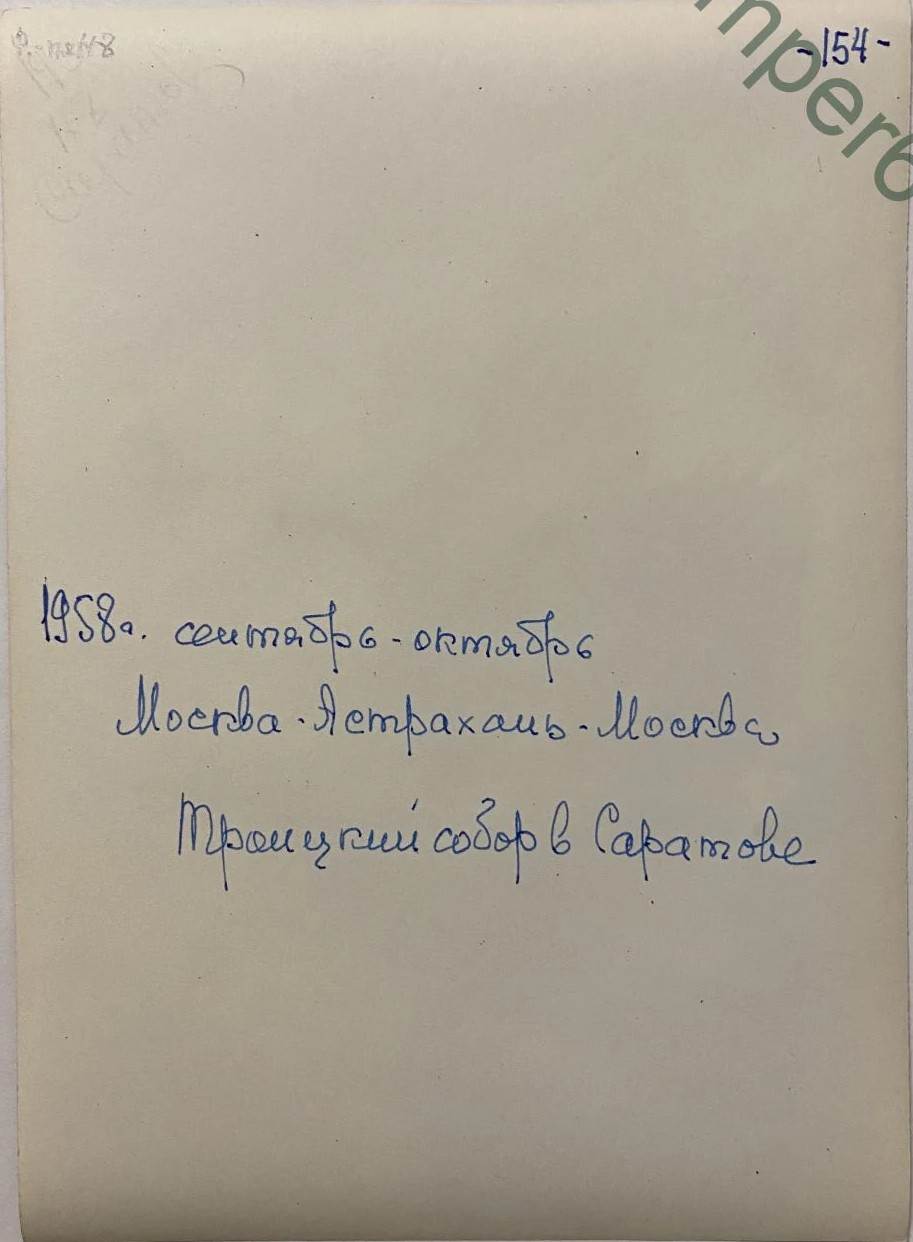 -154-
1958г. сентябрь - октябрь
Москва - Астрахань - Москва
Троицкий собор в Саратове